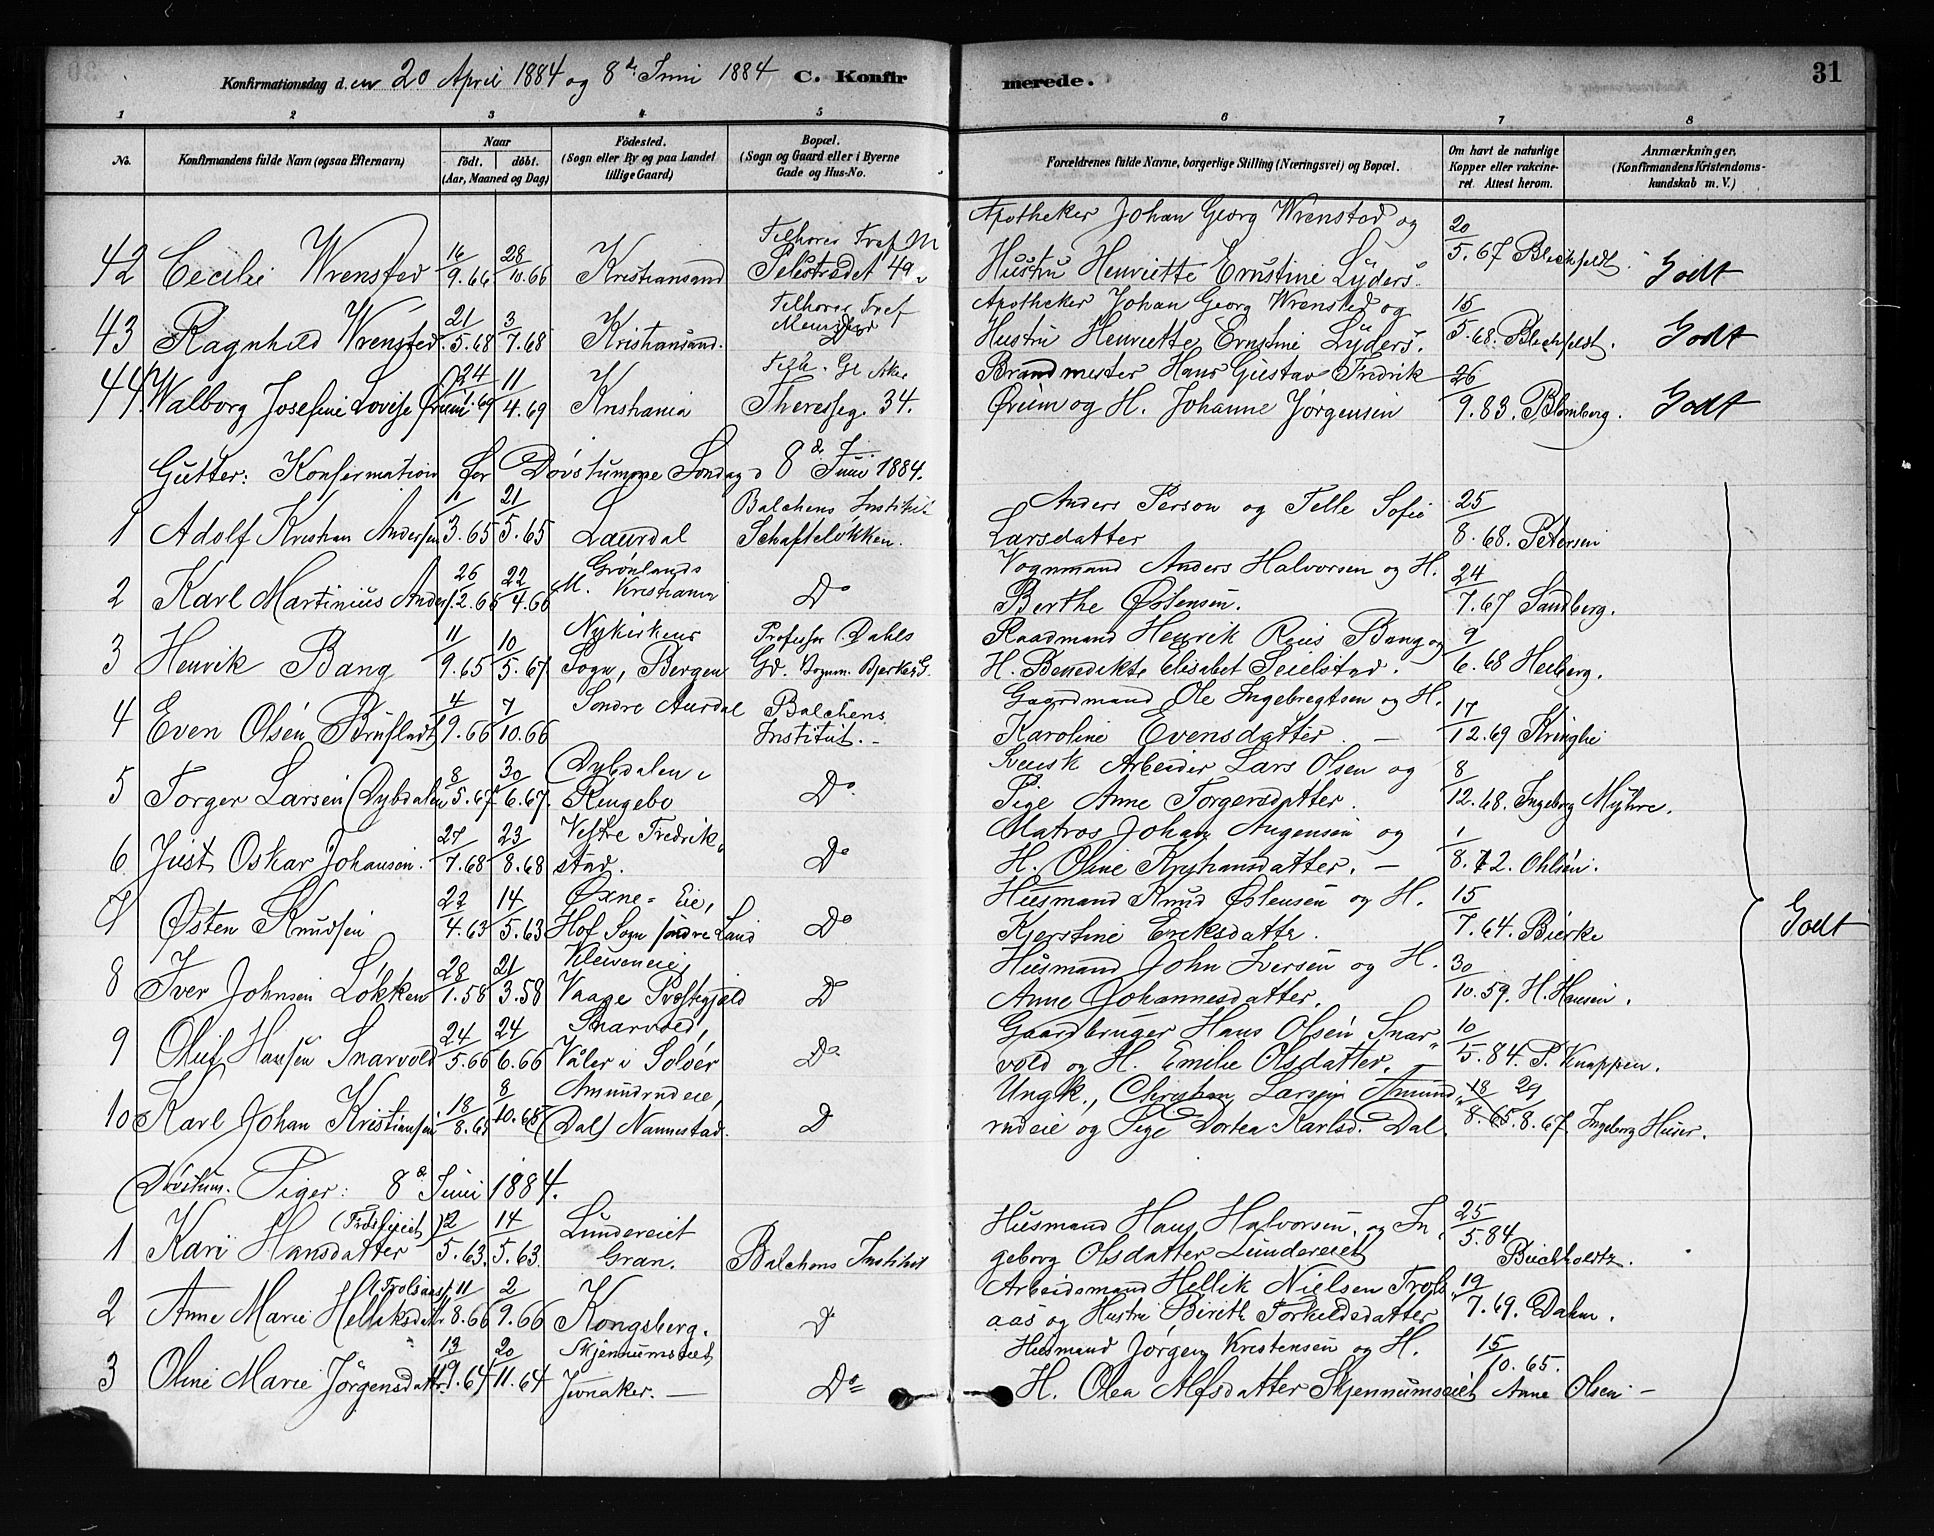 Konfirmationsdag d.en 20 April 1884 og 8de Juni 1884 C. Konfirmerede. 31
1 2 3 4 5 6 7 8
No. Konfirmandens fulde Navn (ogsaa Efternavn) Naar født. døbt. (Aar, Maaned og Dag) Fødested. (Sogn eller By og paa Landet tillige Gaard) Bopæl. (Sogn og Gaard eller i Byerne Gade og Hus-No. Forældrenes fulde Navne, borgerlige Stilling (Næringsvei) og Bopæl. Om havt de naturlige Kopper eller vakcineret. Attest herom. Anmærkninger. (Konfirmandens Kristendomskundskab m. V.)
Tilhører Tref M Apotheker Johan Georg Wrensted og
42 Cecilie Wrensted 16/9.66 28/10.66 Kristiansand 49 Hustru Henriette Ernstine Lüders. 20/5.67 Blechfeldt. Godt
Tilhører Tref Apotheker Johan Georg Wrensted og
43 Ragnhild Wrensted 21/5.68 3/7.68 Kristiansund. Menighed Hustru Henriette Ernstine Lüders. 15/5.68. Blechfeldt. Godt
Tilh. Gl Aker Brandmester Hans Gustav Fredrik
44 Walborg Josefine Lovise Ørum 24/1.69 11/4.69 Kristiania Theresesg. 34. Ørum og H. Johanne Jørgensen 26/9.83. Blomberg. Godt
Gutter: Konfirmation for Døvstumme Søndag d 8de Juni 1884.
Balchens Institut Anders Person og Telle Sofie
1 Adolf Kristian Andersen 1/3.65 21/5.65 Laurdal Schafteløkken. Larsdatter 25/8.68. Petersen
Grønlands Vognmand Anders Halvorsen og H.
2 Karl Martinius Anders. 26/12.65 22/4.66 M. Kristiania Do Berthe Østensen. 24/7.67 Sandberg.
Nykirkens Professor Dahls Raadmand Henrik Reus Bang og
3 Henrik Bang 11/9.65 10/5.67. Sogn, Bergen Gd. Bogum. Bjerke G. H. Benedikte Elisabet Seielstad. 9/6.68 Heiberg.
Søndre Aurdal Balchens Gaardmand Ole Ingebregtsen og H.
4 Even Olsén Brufladt 4/9.66 7/10.66 Institut. Karoline Evensdatter. — 17/12.69 Kringhe
Dybdalen i Svensk Arbeider Lars Olsen og
5 Torger Larsen (Dybdalen 8/5.67 30/6.67. Ringebo Do Pige Anne Torgersdatter. 8/12.68. Ingeborg Myhre.
Vestre Fredrik- Matros Johan Augensen og
6 Just Oskar Johansen. 27/7.68 23/8.68 stad. Do H. Oline Kryhansdatter. — 1/8.72. Ohlsén.
Øxne=Eie, Husmand Knud Østensen og H.
7 Østen Knudsen 22/4.63 14/5.63 Hof Sogn søndre Land Do Kjerstine Eriksdatter. 15/7.64. Bierke Godt
Kleiveneie, Husmand John Iversen og H.
8 Iver Johnsen Løkken 28/1.58 21/3.58 Vaage Præstegjæld D Anne Johannesdatter. 30/10.59. H. Hansen.
Snarvold, Gaardbruger Hans Olsén Snar-
9 Oluf Hansen Snarvold 24/5.66 24/6.66 Våler i Solóer Do vold og H. Emilie Olsdatter. — 10/5.84. P. Knappen.
Amundrudeie, Ungk., Christian Larssen Amund-
10 Karl Johan Kristiansen 18/8.65 8/10.65 (Dal) Nannestad. D rudeie og Pige Dortea Karlsd. Dal. 18/8.65. 29/8.67 Ingeborg Huser.
Døvstum. Piger: 8de Juni 1884.
Husmand Hans Halvorsen, og In-
1 Kari Hansdatter 2/5.63. 14/5.63. Lundereiet Gran. Balchens Institut geborg Olsdatter Lundereiet 25/5.84 Buchholdtz.
(Trolsaas) Arbeidsmand Hellik Nielsen Trols-
2 Anne Marie Helliksdatter 11/8.66 2/9.66 Kongsberg. D aas og Hustru Bireth Torkildsdatter 19/7.69. Dahm.
Skjennumseiet Husmand Jørgen Kristensen og H.
3 Oline Marie Jørgensdatter. 13/9.64 20/11.64 Jevnaker. — Do H. Olea Alfsdatter Skjennumseiet 15/10.65. Anne Olsen —